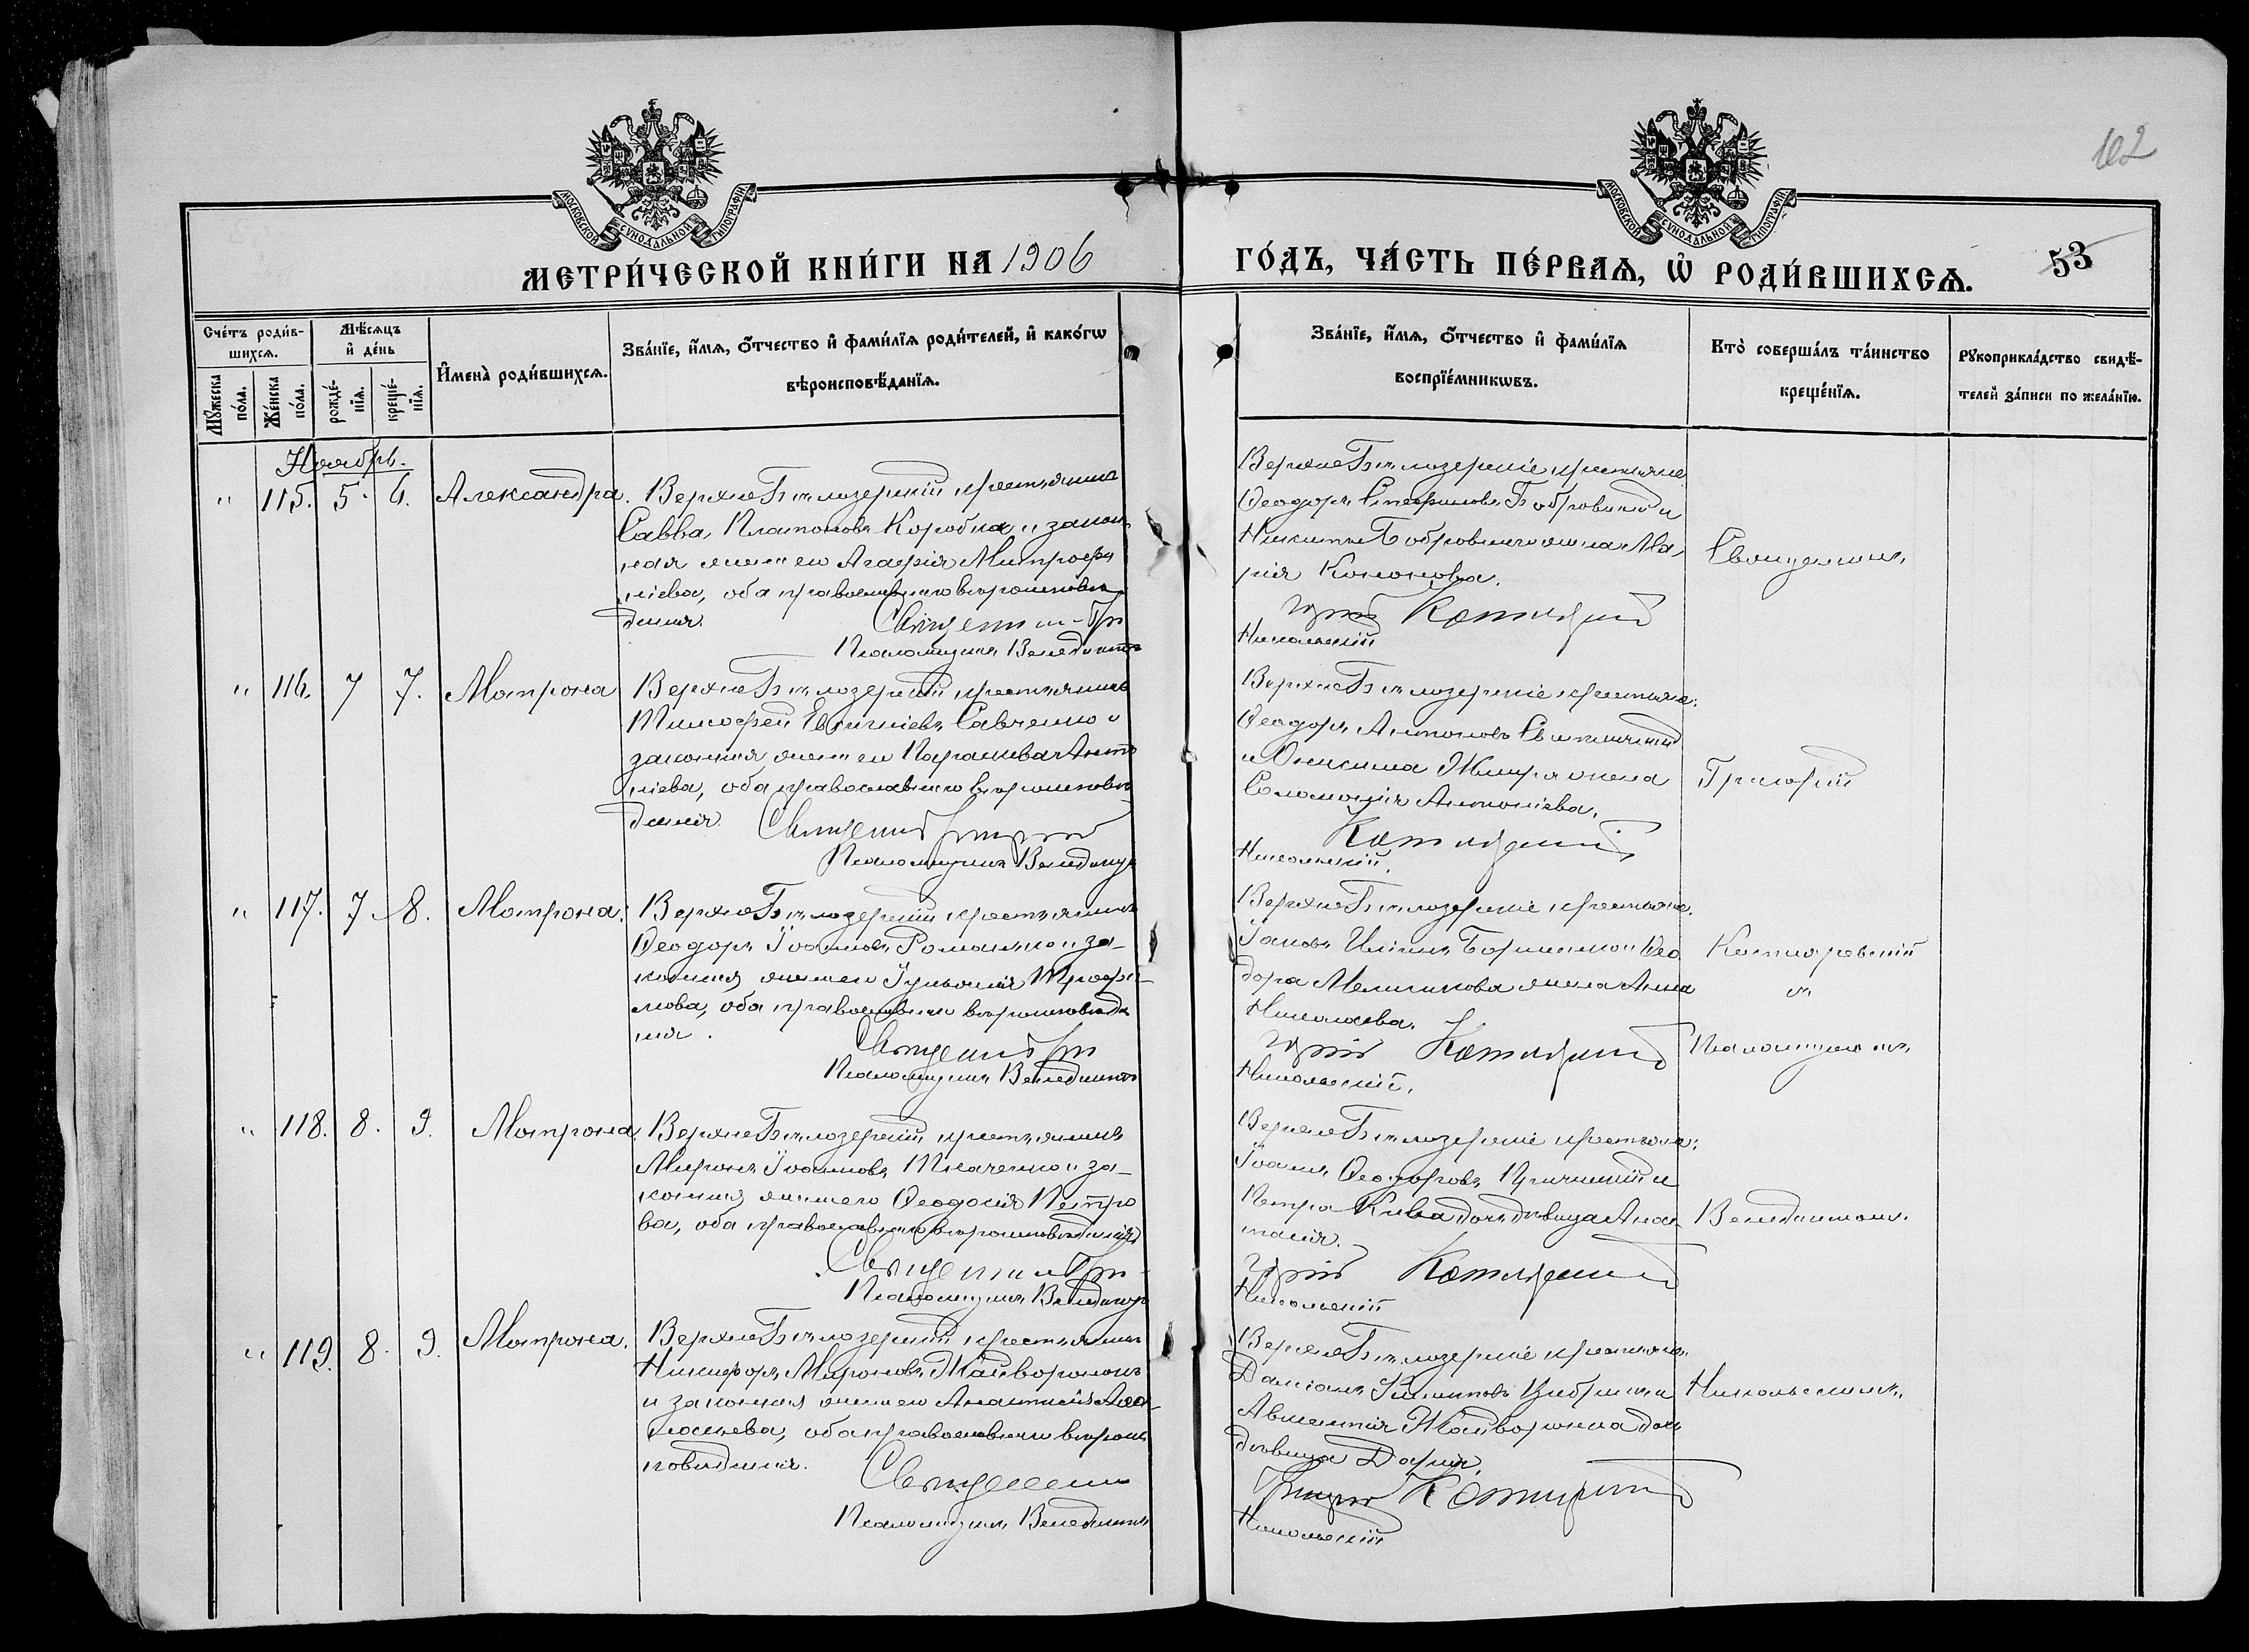 102
МОСКОВСКОЙ СѴНОДАЛЬНОЙ ТИПОГРАФІИ
МОСКОВСКОЙ СѴНОДАЛЬНОЙ ТИПОГРАФІИ
МЕТРИ́ЧЕСКОЙ КНИ́ГИ НА 1906
ГО́ДЪ, ЧА́СТЬ ПЕ́РВАѦ, Ѡ҆ РОДИ́ВШИХСѦ.
53
Сче́тъ роди́в-
шихсѧ.
Мꙋ́жеска по́ла.
Же́нска по́ла.
Мѣ́сѧцъ
и҆ де́нь
рожде́-
нїѧ.
креще́-
нїѧ.
И҆мена̀ роди́вшихсѧ.
Зва́нїе, и҆́мѧ, ѻ҆́тчество и҆ фами́лїѧ роди́телей, и҆ како́гѡ
вѣроисповѣ́данїѧ.
Зва́нїе, и҆́мѧ, ѻ҆́тчество и҆ фами́лїѧ
воспрїе́мникѡвъ.
Кто̀ соверша́лъ та́инство
креще́нїѧ.
Рꙋкоприкла́дство свидѣ́-
телей за́писи по жела́нїю.
Ноябрь.
" 115. 5. 6. Александра. ВерхнеБѣлозерскій крестьянинъ
Савва Платоновъ Коробка и закон
ная жена его Агафія Митрофа
ніева, оба православнаго вѣроисповѣ
данія.
Священникъ Гри
Псаломщикъ Венедиктъ
ВерхнеБѣлозерскіе крестьяне
Ѳеодоръ Стефановъ Бобровскій и
Никиты Бобровскаго жена Ма
рія Кононова.
горій Котляревскій
Никольскій
Священникъ
" 116. 7 7. Матрона ВерхнеБѣлозерскій крестьянинъ
Тимофей Евфиміевъ Савченко и
законная жена его Параскева Анто
ніева, оба православнаго вѣроисповѣ
данія.
Священникъ Григорій
Псаломщикъ Венедиктъ
ВерхнеБѣлозерскіе крестьяне:
Ѳеодоръ Антоновъ
и Онисима жена
Соломонія Антоніева.
Котляревскій
Никольскій.
Григорій
" 117. 7 8. Матрона. ВерхнеБѣлозерскій крестьянинъ
Ѳеодоръ Іоанновъ Романенко и за-
конная жена его Іуліанія Трофи-
мова, оба православнаго вѣроисповѣда
нія.
Священникъ Гри
Псаломщикъ Венедиктъ
ВерхнеБѣлозерскіе крестьяне:
Іаковъ Ильинъ и Ѳео
дора Мельникова жена Анна
Николаева.
горій Котляревскій
Никольскій.
Котляревскій
съ
Псаломщикомъ
" 118. 8. 9. Матрона. ВерхнеБѣлозерскій крестьянинъ
Миронъ Іоанновъ Ткаченко и за-
конная жена его Ѳеодосія Петро
ва, оба православнаго вѣроисповѣданія
Священникъ Гри
Псаломщикъ Венедиктъ
ВерхнеБѣлозерскіе крестьяне:
Іоаннъ Ѳеодоровъ и
Петра Кива дочь дѣвица Анас
тасія.
горій Котляревскій
Никольскій
Венедиктомъ
" 119. 8. 9. Матрона. ВерхнеБѣлозерскій крестьянинъ
Никифоръ Мироновъ Жайворонокъ
и законная жена его Анастасія
оба православнаго вѣроис
повѣданія.
Священникъ
Псаломщикъ Венедиктъ
ВерхнеБѣлозерскіе крестьяне:
Даміанъ и
Авксентія Жайворонка дочь
дѣвица Дарія.
Григорій Котляревскій
Никольскій
Никольскимъ.